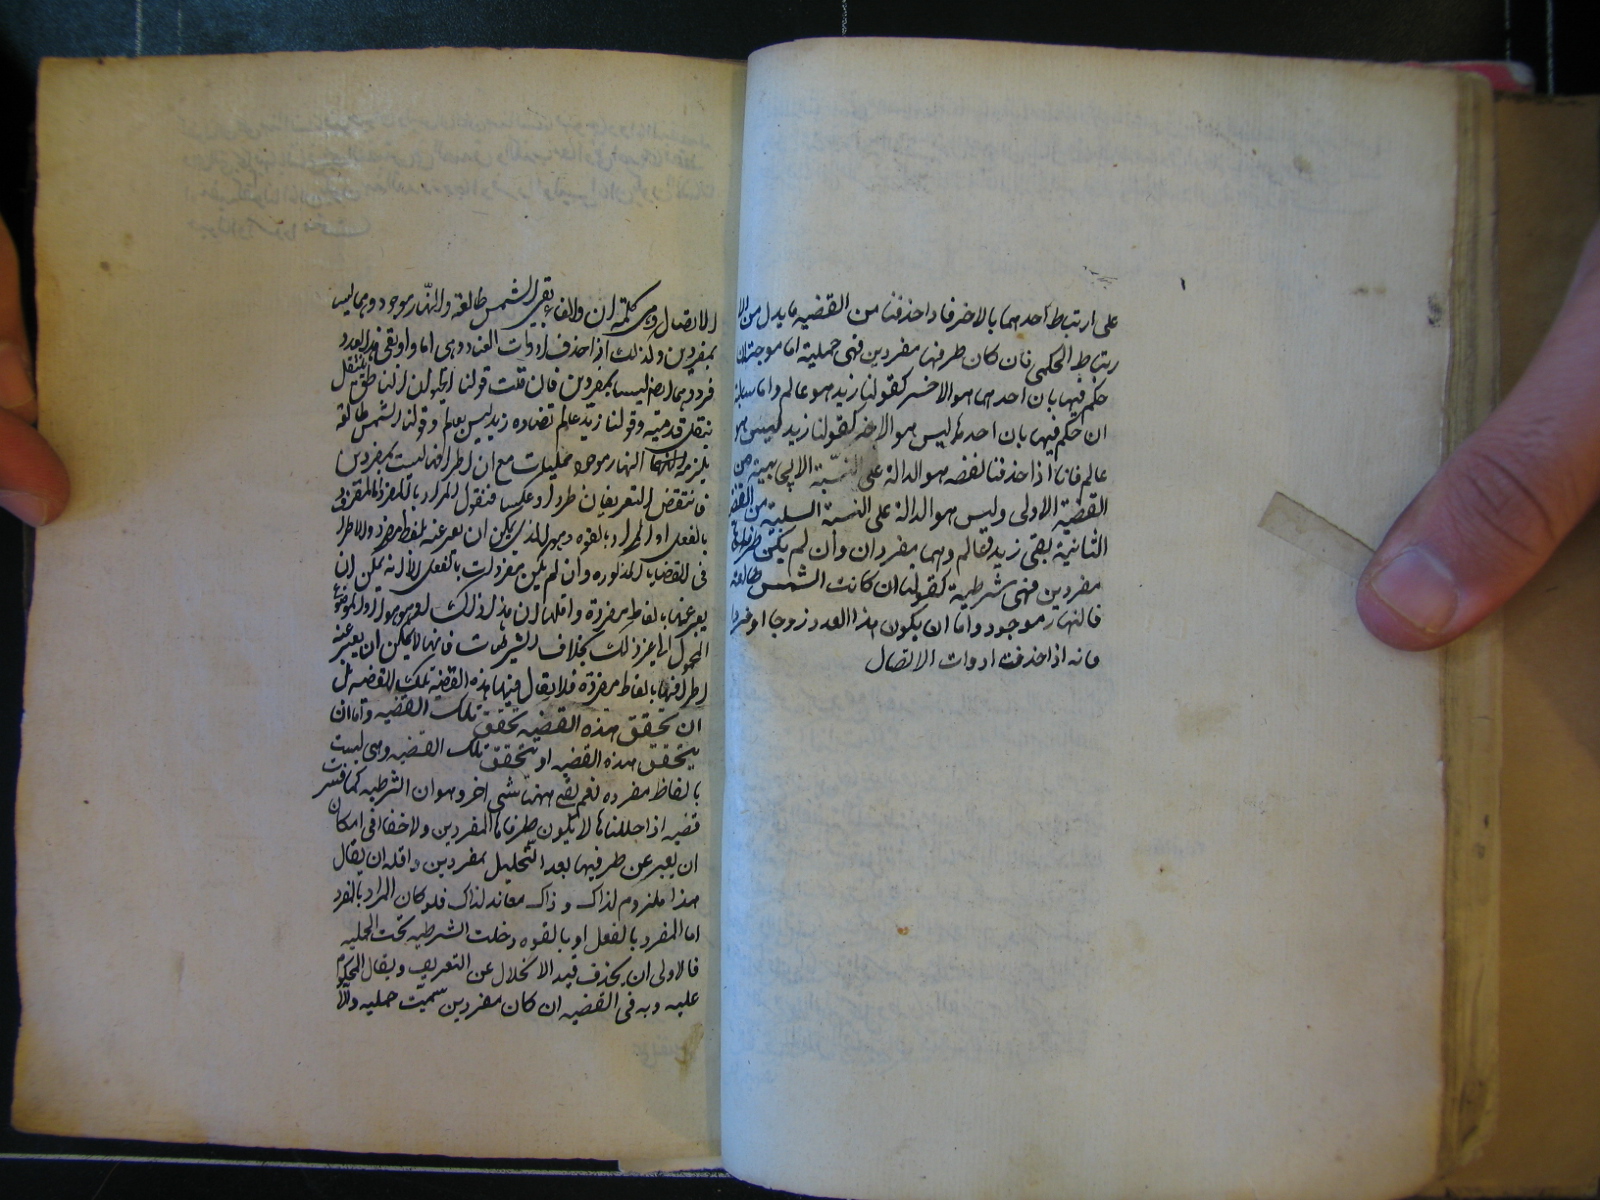 على ارتباط احدهما بالاخر فاذا حذفنا من القضيه ما يدل من الا
رتباط الحكمى فان كان طرفها مفردين فهى حملية اما موجبة ان
حكم فيها بان احدهما هو الاخر كقولنا زيد هو عالم واما سالبة
ان حكم فيها بان احدهما ليس هو الاخر كقولنا زيد ليس هو
عالم فانا اذا حذفنا لفضه هو الدالة على النسبة الايجابية من
القضية الاولى وليس هو الدالة على النسبة السلبية من القضية
الثانية بقى زيد وعالم وهما مفردان وان لم يكن طرفاها
مفردين فهى شرطية كقولنا ان كانت الشمس طالعة
فالنهار موجود واما ان يكون هذا العدد زوجا او فردا
فانه اذا حذفت ادوات الاتصال
الاتصال وهى كلمة ان والفاء بقى الشمس طالعة والنهار موجود وهما ليسا
بمفردين ولذلك اذا حذف ادوات العناد وهى اما واو بقى هذا العدد
فرد وهما ايضا ليسا بمفردين فان قلت قولنا الحيوان الناطق ينتقل
بنقل قدميه وقولنا زيد عالم تضاده زيد ليس بعالم وقولنا الشمس طالعة
يلزمه النهار موجود حمليات مع ان اطرافها ليست بمفردين
فانتقض التعريفان طردا وعكسا فنقول المراد بالمفرد اما المفرد
بالفعل او المراد بالقوه وهو الذى يمكن ان يعبر عنه بلفظ مفرد والاطراف
فى القضايا المذكوره وان لم يكن مفردات بالفعل الا انه يمكن ان
يعبر عنها بالفاظ مفردة واقلها ان هذا ذاك او هو هو او الموضوع
المحمول الى غير ذلك بخلاف الشرطيات فانها لا يمكن ان يعبر عن
اطرافها بالفاظ مفردة فلا يقال فيها هذه القضية تلك القضيه بل
ان تحقق هذه القضيه تحقق تلك القضيه واما ان
يتحقق هذه القضيه او يتحقق تلك القضيه وهى ليست
بالفاظ مفرده نعم بقى ههنا شى اخر وهو ان الشرطيه كما فسر
قضيه اذا حللناها لا يكون طرفاها المفردين ولا خفا فى امكان
ان يعبر عن طرفيها بعد التحليل بمفردين واقله ان يقال
هذا ملزوم لذاك و ذاك معاند لذاك فلو كان المراد بالمفرد
اما المفرد بالفعل او بالقوه دخلت الشرطيه تحت الحمليه
فالاولى ان يحذف قيد الانحلال عن التعريف ويقال المحكوم
عليه وبه فى القضيه ان كان مفردين سميت حمليه والا